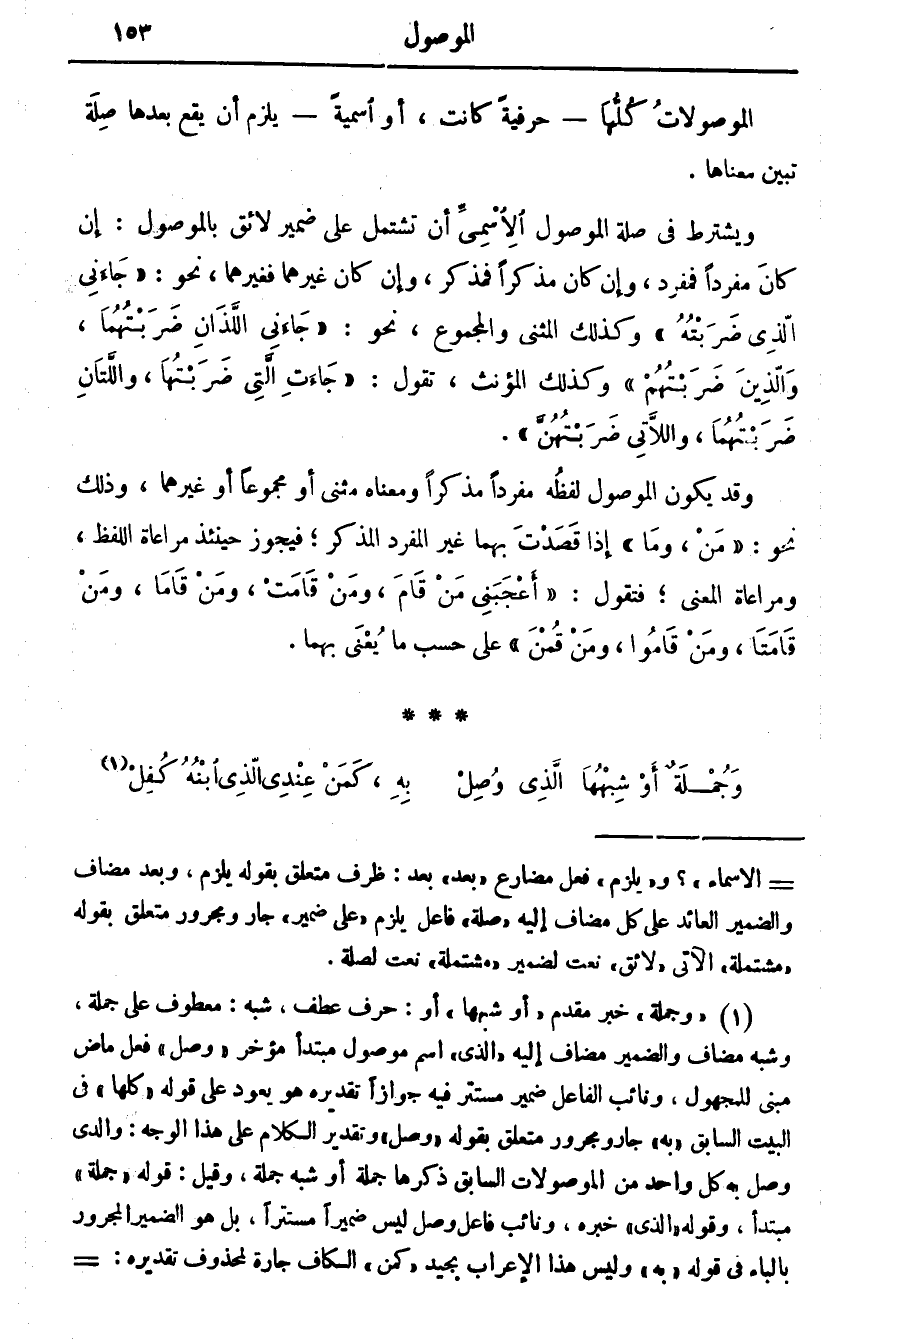 الموصول ١٥٣
الموصولاتُ كُلُّهَا — حرفيةً كانت ، أو ٱسميةً — يلزم أن يقع بعدها صِلَة
تبين معناها .
ويشترط فى صلة الموصول ٱلِٱسْمِىِّ أن تشتمل على ضمير لائق بالموصول : إن
كانَ مفرداً فمفرد ، وإن كان مذكراً فمذكر ، وإن كان غيرهما فغيرهما ، نحو : « جَاءَنِى
الَّذِى ضَرَبْتُهُ » وكذلك المثنى والمجموع ، نحو : « جَاءَنِى اللَّذَانِ ضَرَبْتُهُمَا ،
وَالَّذِينَ ضَرَبْتُهُمْ » وكذلك المؤنث ، تقول : « جَاءَتِ الَّتِى ضَرَبْتُهَا ، واللَّتَانِ
ضَرَبْتُهُمَا ، واللاَّتِى ضَرَبْتُهُنَّ » .
وقد يكون الموصول لفظُه مفرداً مذكراً ومعناه مثنى أو مجموعاً أو غيرهما ، وذلك
نحو : « مَنْ ، ومَا » إذا قَصَدْتَ بهما غير المفرد المذكر ؛ فيجوز حينئذ مراعاة اللفظ ،
ومراعاة المعنى ؛ فتقول : « أَعْجَبَنِى مَنْ قَامَ ، ومَنْ قَامَتْ ، ومَنْ قَامَا ، ومَنْ
قَامَتَا ، ومَنْ قَامُوا ، ومَنْ قُمْنَ » على حسب ما يُعْنَى بهما .
* * *
وَجُمْـلَةٌ أَوْ شِبْهُهَا الَّذِى وُصِلْ بِهِ ، كَمَنْ عِنْدِى الَّذِى ٱبْنُهُ كُفِلْ (١)
= الاسماء ، ؟ و « يلزم » فعل مضارع « بعد » بعد : ظرف متعلق بقوله يلزم ، وبعد مضاف
والضمير العائد على كل مضاف إليه « صلة » فاعل يلزم « على ضمير » جار ومجرور متعلق بقوله
« مشتملة » الآتى « لائق » نعت لضمير « مشتملة » نعت لصلة .
(١) « وجملة » خبر مقدم « أو شبهها » أو : حرف عطف ، شبه : معطوف على جملة ،
وشبه مضاف والضمير مضاف إليه « الذى » اسم موصول مبتدأ مؤخر « وصل » فعل ماض
مبنى للمجهول ، ونائب الفاعل ضمير مستتر فيه جوازاً تقديره هو يعود على قوله « كلها » فى
البيت السابق « به » جار ومجرور متعلق بقوله « وصل » وتقدير الكلام على هذا الوجه : والذى
وصل به كل واحد من الموصولات السابق ذكرها جملة أو شبه جملة ، وقيل : قوله « جملة »
مبتدأ ، وقوله « الذى » خبره ، ونائب فاعل وصل ليس ضميراً مستتراً ، بل هو الضمير المجرور
بالباء فى قوله « به » وليس هذا الإعراب بجيد « كمن » الكاف جارة لمحذوف تقديره : =